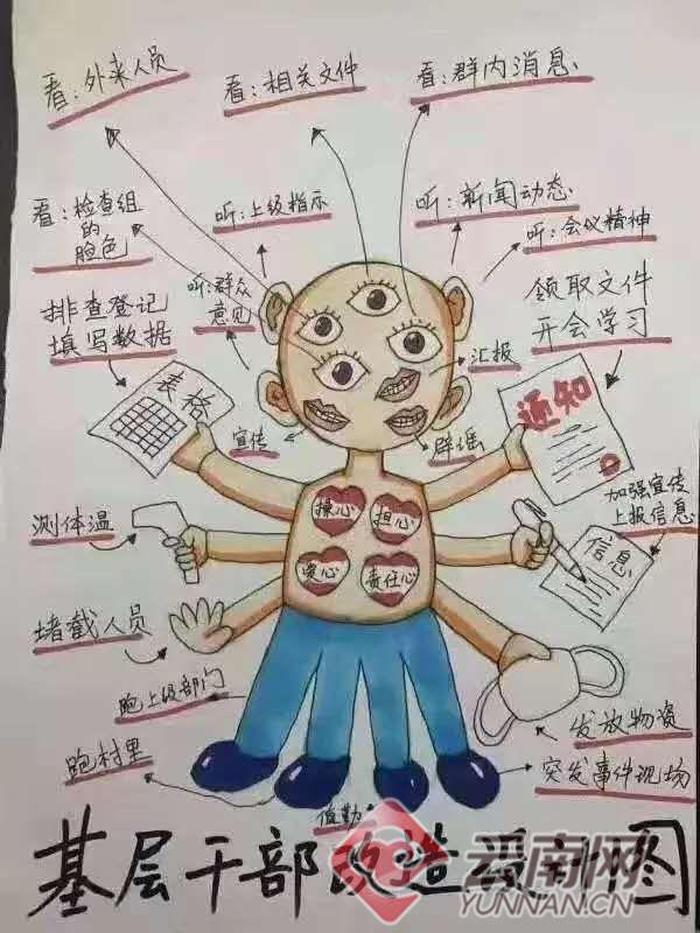 看:外来人员
看:相关文件
看:群内消息
看:检查组
的
脸色
听:上级指示
听:新闻动态
听:会议精神
排查登记
填写数据
听:群众
意见
领取文件
开会学习
汇报
表格
通知
宣传
辟谣
测体温
操心
担心
爱心
责任心
加强宣传
上报信息
信息
堵截人员
跑上级部门
发放物资
跑村里
突发事件现场
值勤
基层干部改造最新图
云南网
YUNNAN.CN